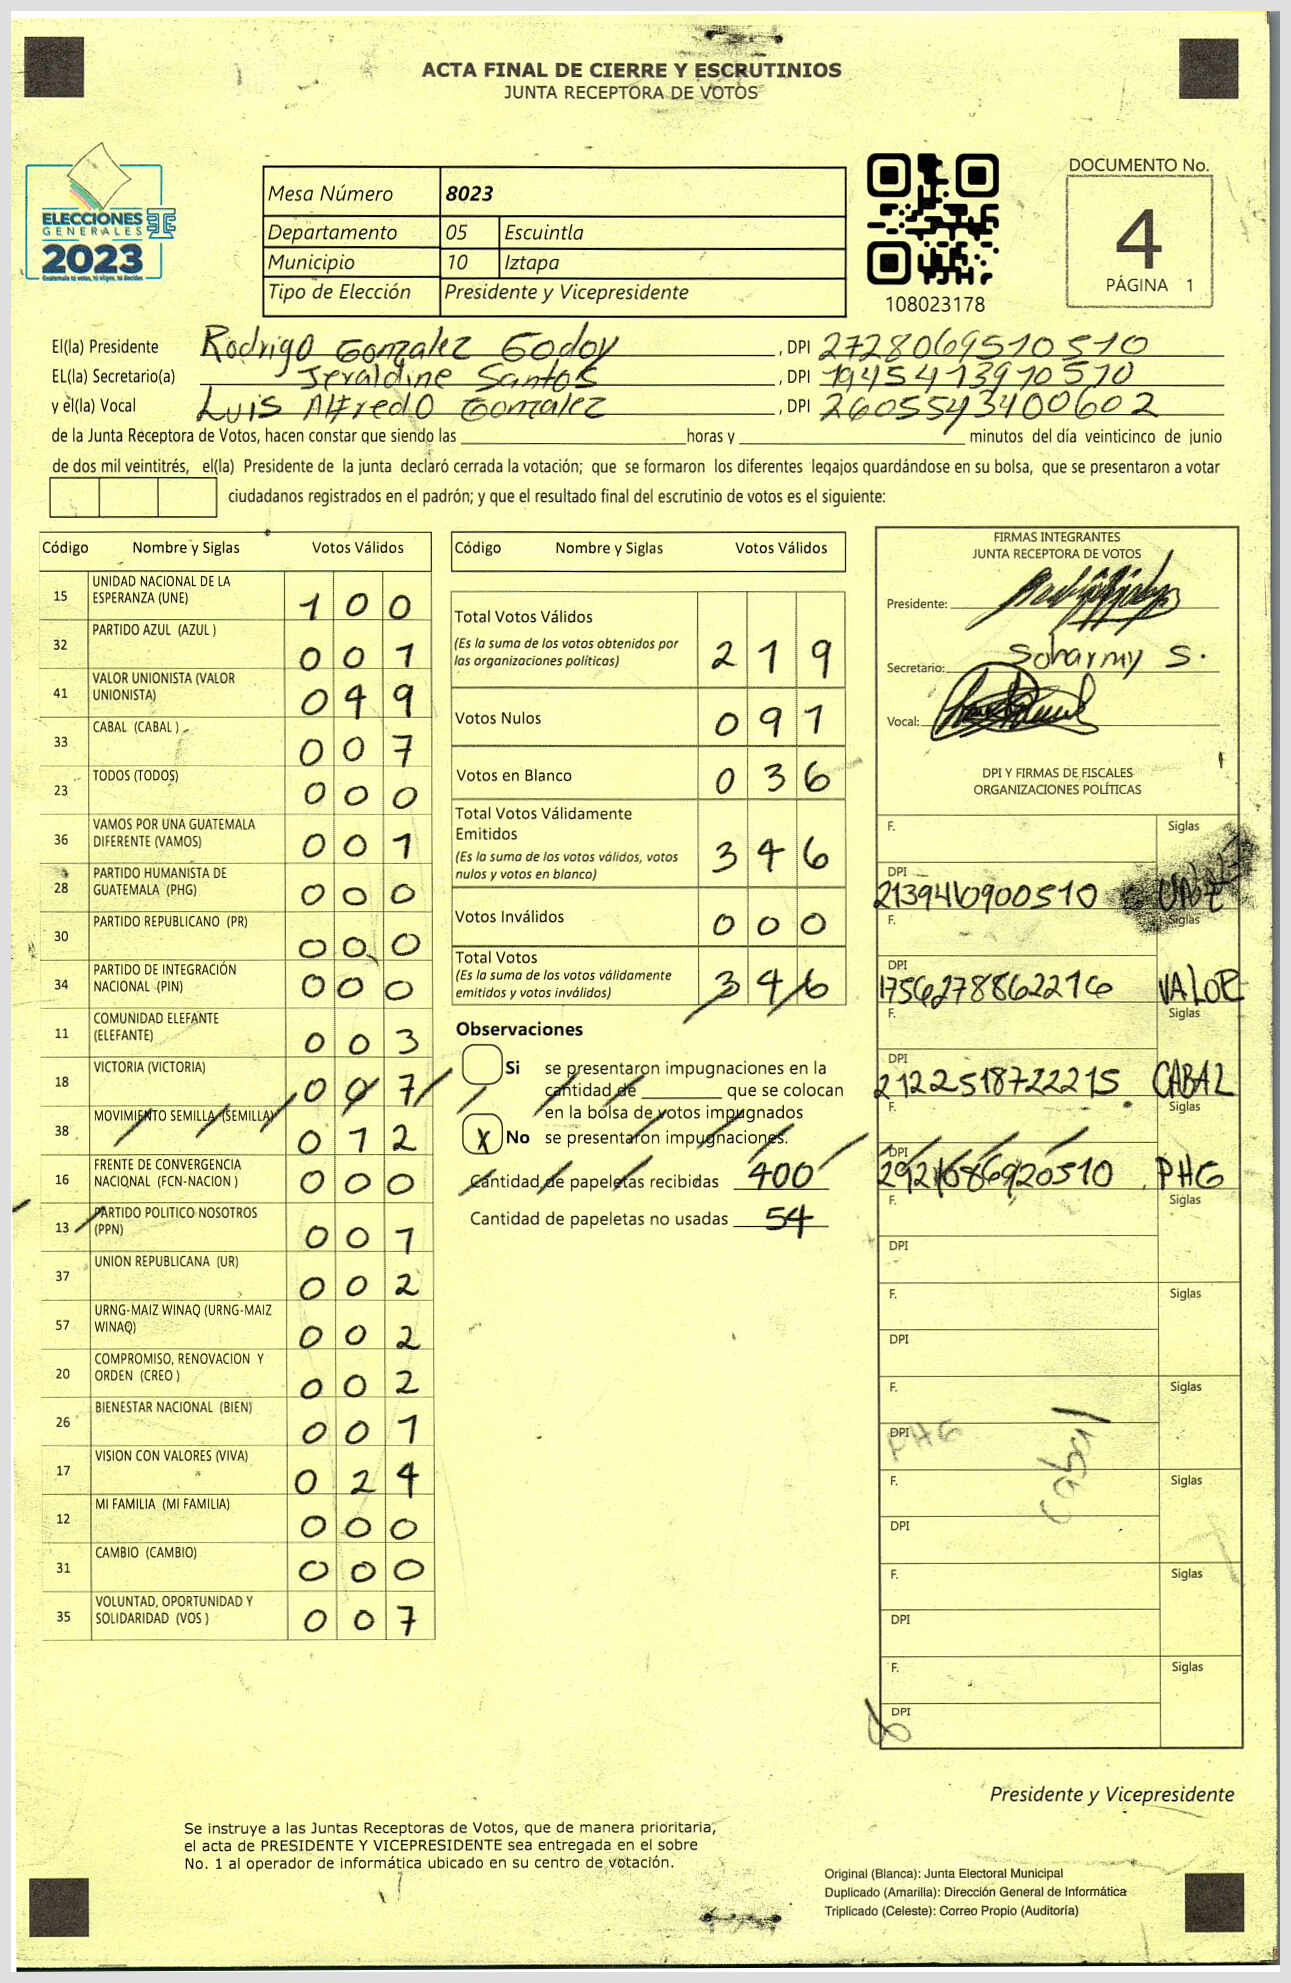 ACTA FINAL DE CIERRE Y ESCRUTINIOS
JUNTA RECEPTORA DE VOTOS
ELECCIONES
GENERALES
2023
Mesa Número 8023
Departamento 05 Escuintla
Municipio 10 Iztapa
Tipo de Elección Presidente y Vicepresidente
108023178
DOCUMENTO No.
4
PÁGINA 1
El(la) Presidente Rodrigo Gonzalez Godoy , DPI 2728069510510
EL(la) Secretario(a) Jeraldine Santos , DPI 1945413910510
y el(la) Vocal Luis Alfredo Gonzalez , DPI 2605543400602
de la Junta Receptora de Votos, hacen constar que siendo las horas y minutos del día veinticinco de junio
de dos mil veintitrés, el(la) Presidente de la junta declaró cerrada la votación; que se formaron los diferentes legajos guardándose en su bolsa, que se presentaron a votar
ciudadanos registrados en el padrón; y que el resultado final del escrutinio de votos es el siguiente:
Código Nombre y Siglas Votos Válidos
15 UNIDAD NACIONAL DE LA ESPERANZA (UNE) 1 0 0
32 PARTIDO AZUL (AZUL ) 0 0 1
41 VALOR UNIONISTA (VALOR UNIONISTA) 0 4 9
33 CABAL (CABAL ) 0 0 7
23 TODOS (TODOS) 0 0 0
36 VAMOS POR UNA GUATEMALA DIFERENTE (VAMOS) 0 0 1
28 PARTIDO HUMANISTA DE GUATEMALA (PHG) 0 0 0
30 PARTIDO REPUBLICANO (PR) 0 0 0
34 PARTIDO DE INTEGRACIÓN NACIONAL (PIN) 0 0 0
11 COMUNIDAD ELEFANTE (ELEFANTE) 0 0 3
18 VICTORIA (VICTORIA) 0 0 7
38 MOVIMIENTO SEMILLA (SEMILLA) 0 1 2
16 FRENTE DE CONVERGENCIA NACIONAL (FCN-NACION ) 0 0 0
13 PARTIDO POLITICO NOSOTROS (PPN) 0 0 1
37 UNION REPUBLICANA (UR) 0 0 2
57 URNG-MAIZ WINAQ (URNG-MAIZ WINAQ) 0 0 2
20 COMPROMISO, RENOVACION Y ORDEN (CREO ) 0 0 2
26 BIENESTAR NACIONAL (BIEN) 0 0 1
17 VISION CON VALORES (VIVA) 0 2 4
12 MI FAMILIA (MI FAMILIA) 0 0 0
31 CAMBIO (CAMBIO) 0 0 0
35 VOLUNTAD, OPORTUNIDAD Y SOLIDARIDAD (VOS ) 0 0 7
Código Nombre y Siglas Votos Válidos
Total Votos Válidos
(Es la suma de los votos obtenidos por
las organizaciones políticas) 2 1 9
Votos Nulos 0 9 1
Votos en Blanco 0 3 6
Total Votos Válidamente
Emitidos
(Es la suma de los votos válidos, votos
nulos y votos en blanco) 3 4 6
Votos Inválidos 0 0 0
Total Votos
(Es la suma de los votos válidamente
emitidos y votos inválidos) 3 4 6
Observaciones
Si se presentaron impugnaciones en la
cantidad de que se colocan
en la bolsa de votos impugnados
X No se presentaron impugnaciones.
Cantidad de papeletas recibidas 400
Cantidad de papeletas no usadas 54
FIRMAS INTEGRANTES
JUNTA RECEPTORA DE VOTOS
Presidente:
Secretario:
Vocal:
DPI Y FIRMAS DE FISCALES
ORGANIZACIONES POLÍTICAS
F. Siglas
DPI
F. Siglas
DPI 1756278862216 VALOR
F. Siglas
DPI 2122518722215 CABAL
F. Siglas
DPI PHG
F. Siglas
DPI
F. Siglas
DPI
F. Siglas
DPI PHG cabal
F. Siglas
DPI
F. Siglas
DPI
F. Siglas
DPI
Presidente y Vicepresidente
Se instruye a las Juntas Receptoras de Votos, que de manera prioritaria,
el acta de PRESIDENTE Y VICEPRESIDENTE sea entregada en el sobre
No. 1 al operador de informática ubicado en su centro de votación.
Original (Blanca): Junta Electoral Municipal
Duplicado (Amarilla): Dirección General de Informática
Triplicado (Celeste): Correo Propio (Auditoría)